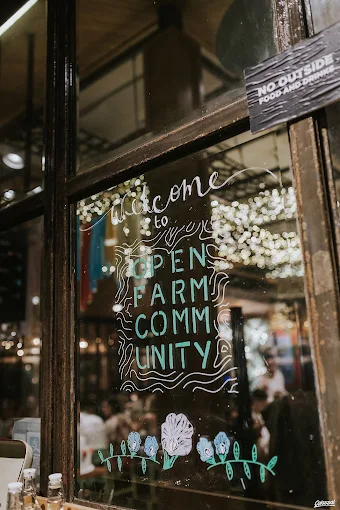 NO OUTSIDE
FOOD AND DRINKS
welcome
to
OPEN
FARM
COMM
UNITY
Colossal